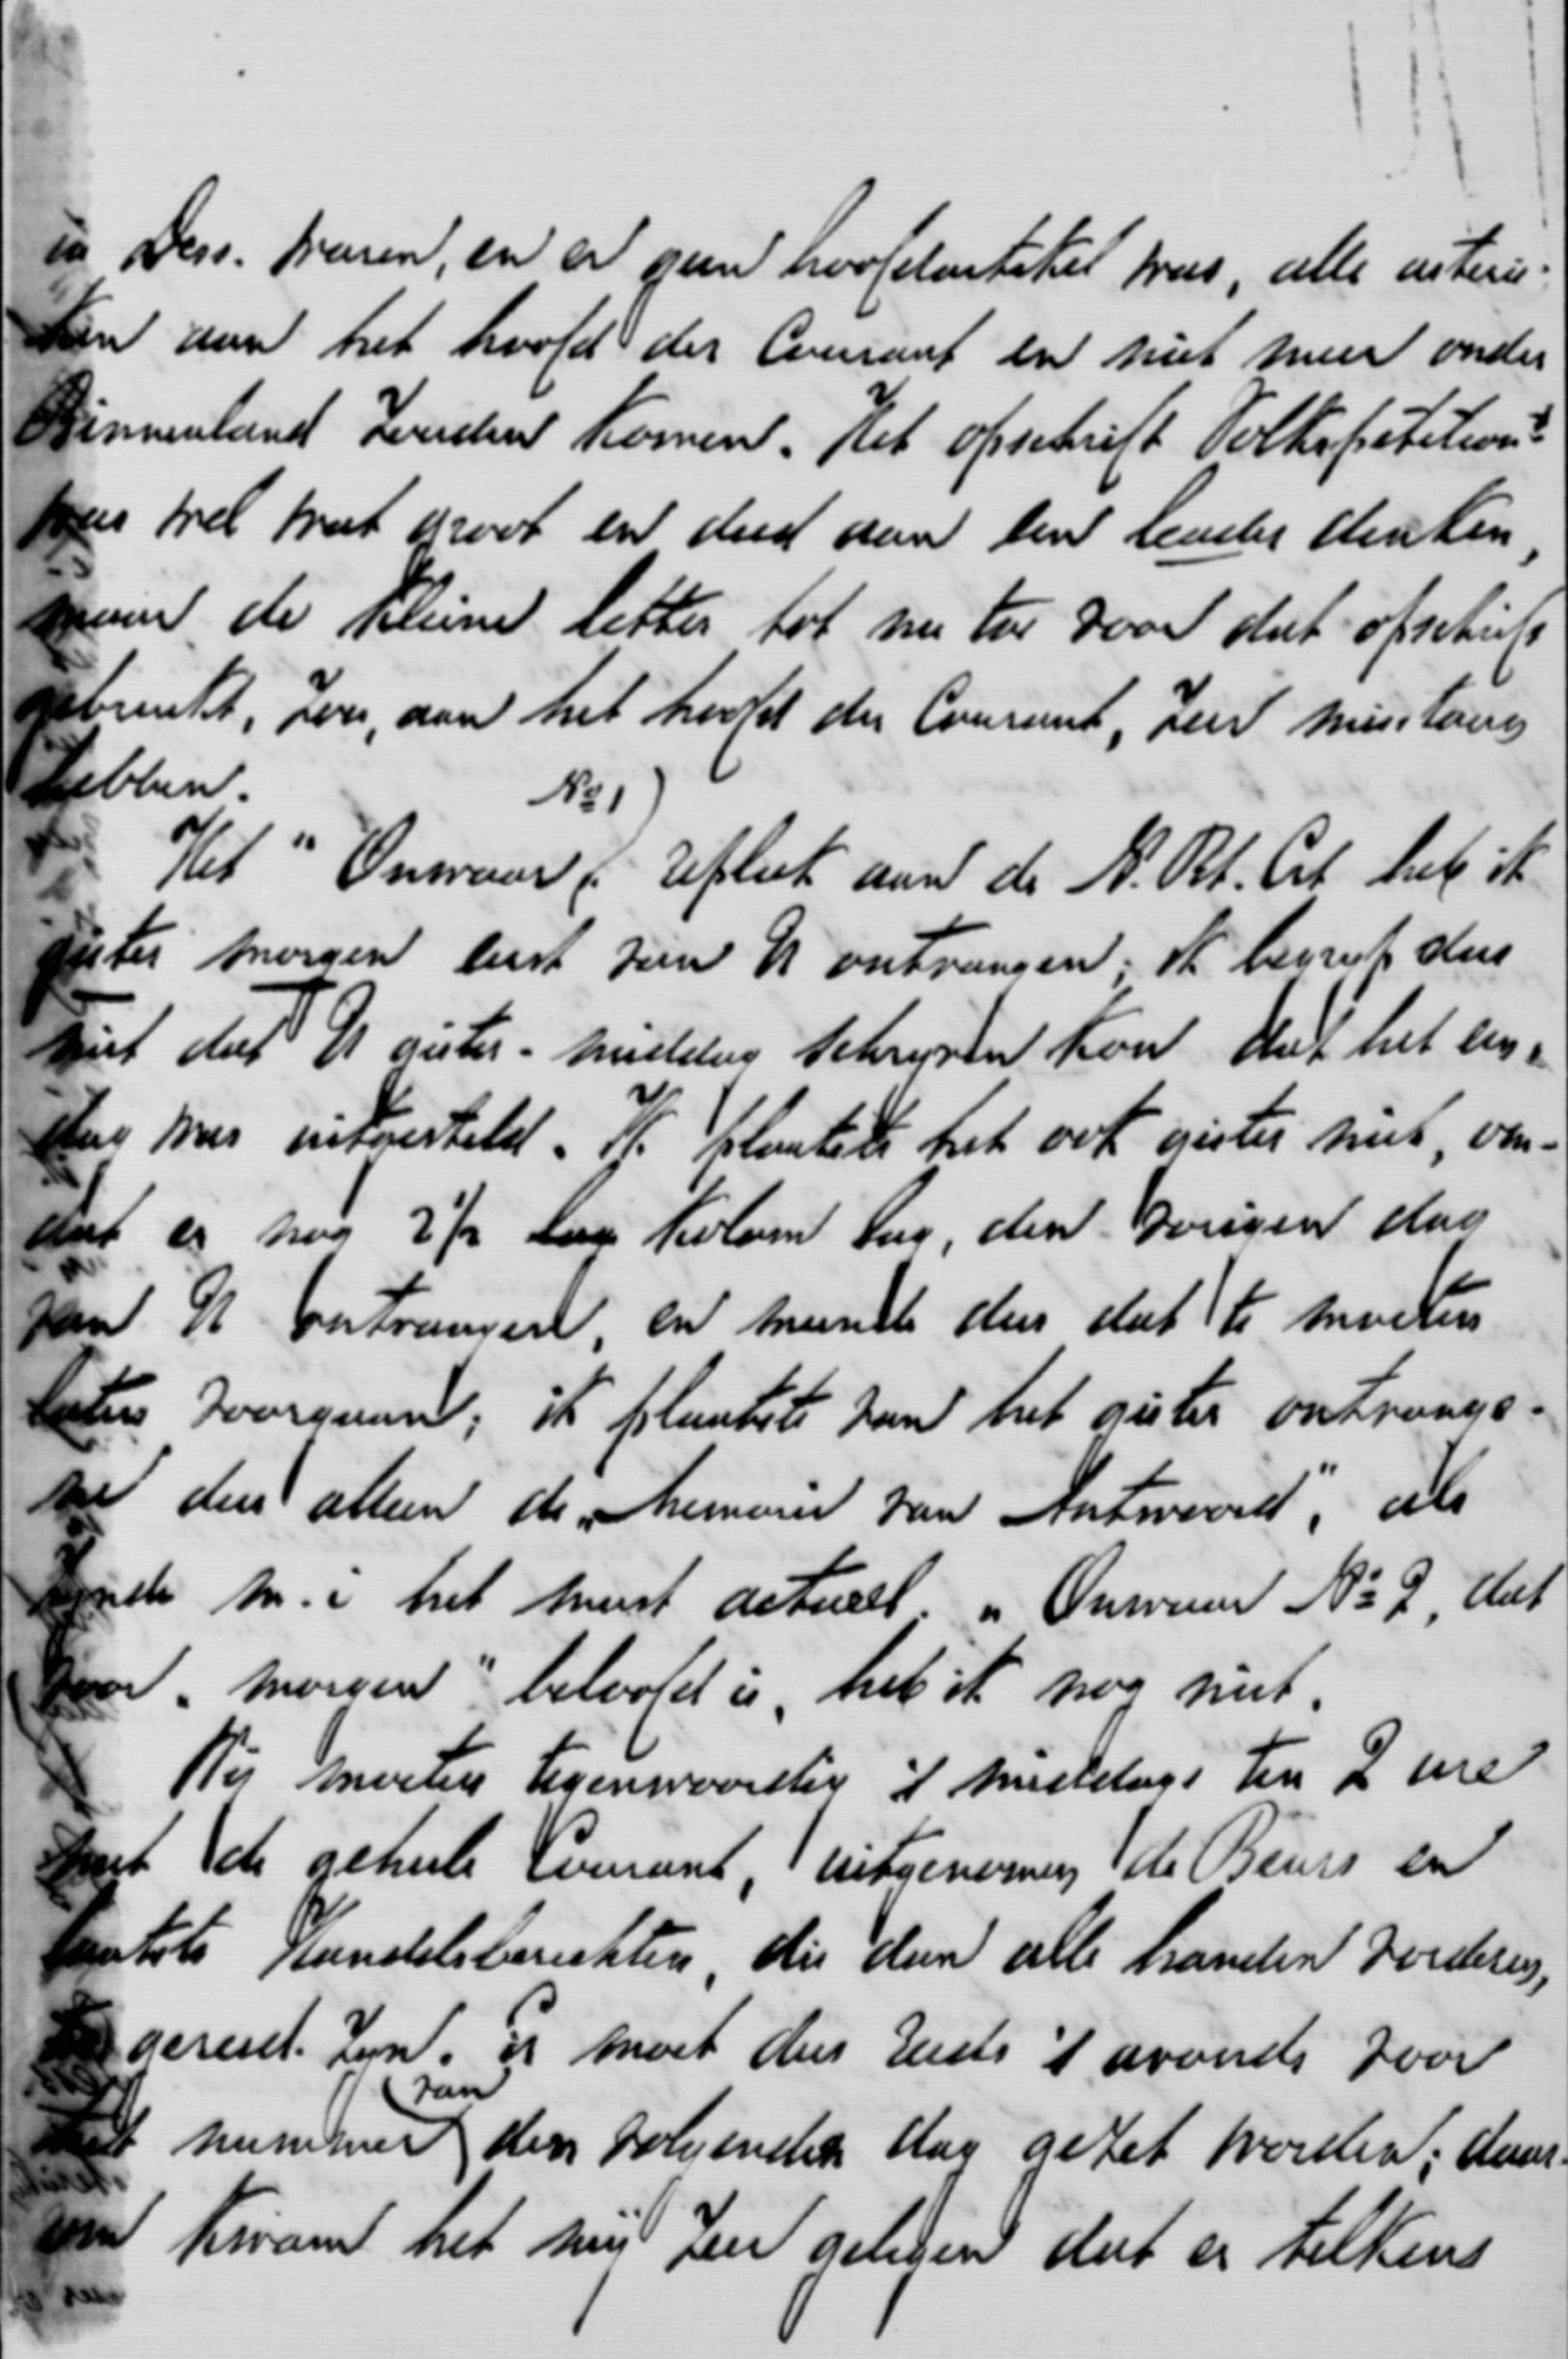 in Dess. waren, en er geen hoofdartikel was, alle asteris-
ken aan het hoofd der Courant en niet meer onder
Binnenland zouden komen. Het opschrift Volkspetition
was wel wat groot en deed aan een leader denken,
maar de kleine letter tot nu toe voor dat opschrift
gebruikt, zou, aan het hoofd der Courant, zeer misstaan
hebben.
No 1)
Het "Onwaar, repliek aan de N. Rot. Crt heb ik
gister morgen eerst van U ontvangen; ik begrijp dus
niet dat U gister-middag schrijven kon dat het een
dag was uitgesteld. Ik plaatste het ook gister niet, om-
dat er nog 2 1/2 kolom lag, den vorigen dag
van U ontvangen, en meende dus dat te moeten
laten voorgaan; ik plaatste van het gister ontvange-
ne dus alleen de "Memorie van Antwoord", als
zijnde m. i het meest actueel. "Onwaar No 2, dat
voor "morgen" beloofd is, heb ik nog niet.
Wij moeten tegenwoordig 's middags ten 2 ure
met de geheele Courant, uitgenomen de Beurs en
laatste Handelsberichten, die dan alle handen vorderen,
gereed zijn. Er moet dus reeds 's avonds voor
het nummer van den volgenden dag gezet worden; daar-
om kwam het mij zeer gelegen dat er telkens